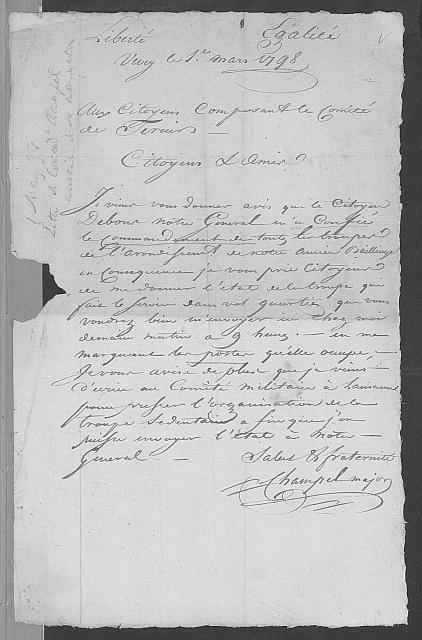 Liberté Egalité
Vevey le 1r mars 1798
Aux Citoyens Composant le Comité
de
Citoyens & Amis
Je viens vous donner avis que le Citoyen
Debons notre General m'a Confiée
le Commandement de toutes les troupes
de l'arondissmt de notre ancien Bailliage
en Consequence je vous prie Citoyens
de me donner l'état de la troupe qui
fait le Service dans vos quartiers, que vous
voudrez bien m'envoyer chez moi
demain matin a 9 heures. en me
marquant les postes qu'elle occupe,
Je vous avise de plus que je viens
d'ecrire au Comité militaire a Lausanne
pour presser l'organisation de la
troupe Sedentaire, a fin que j'en
puisse envoyer l'état à notre
General
Salut & fraternité
Champel major